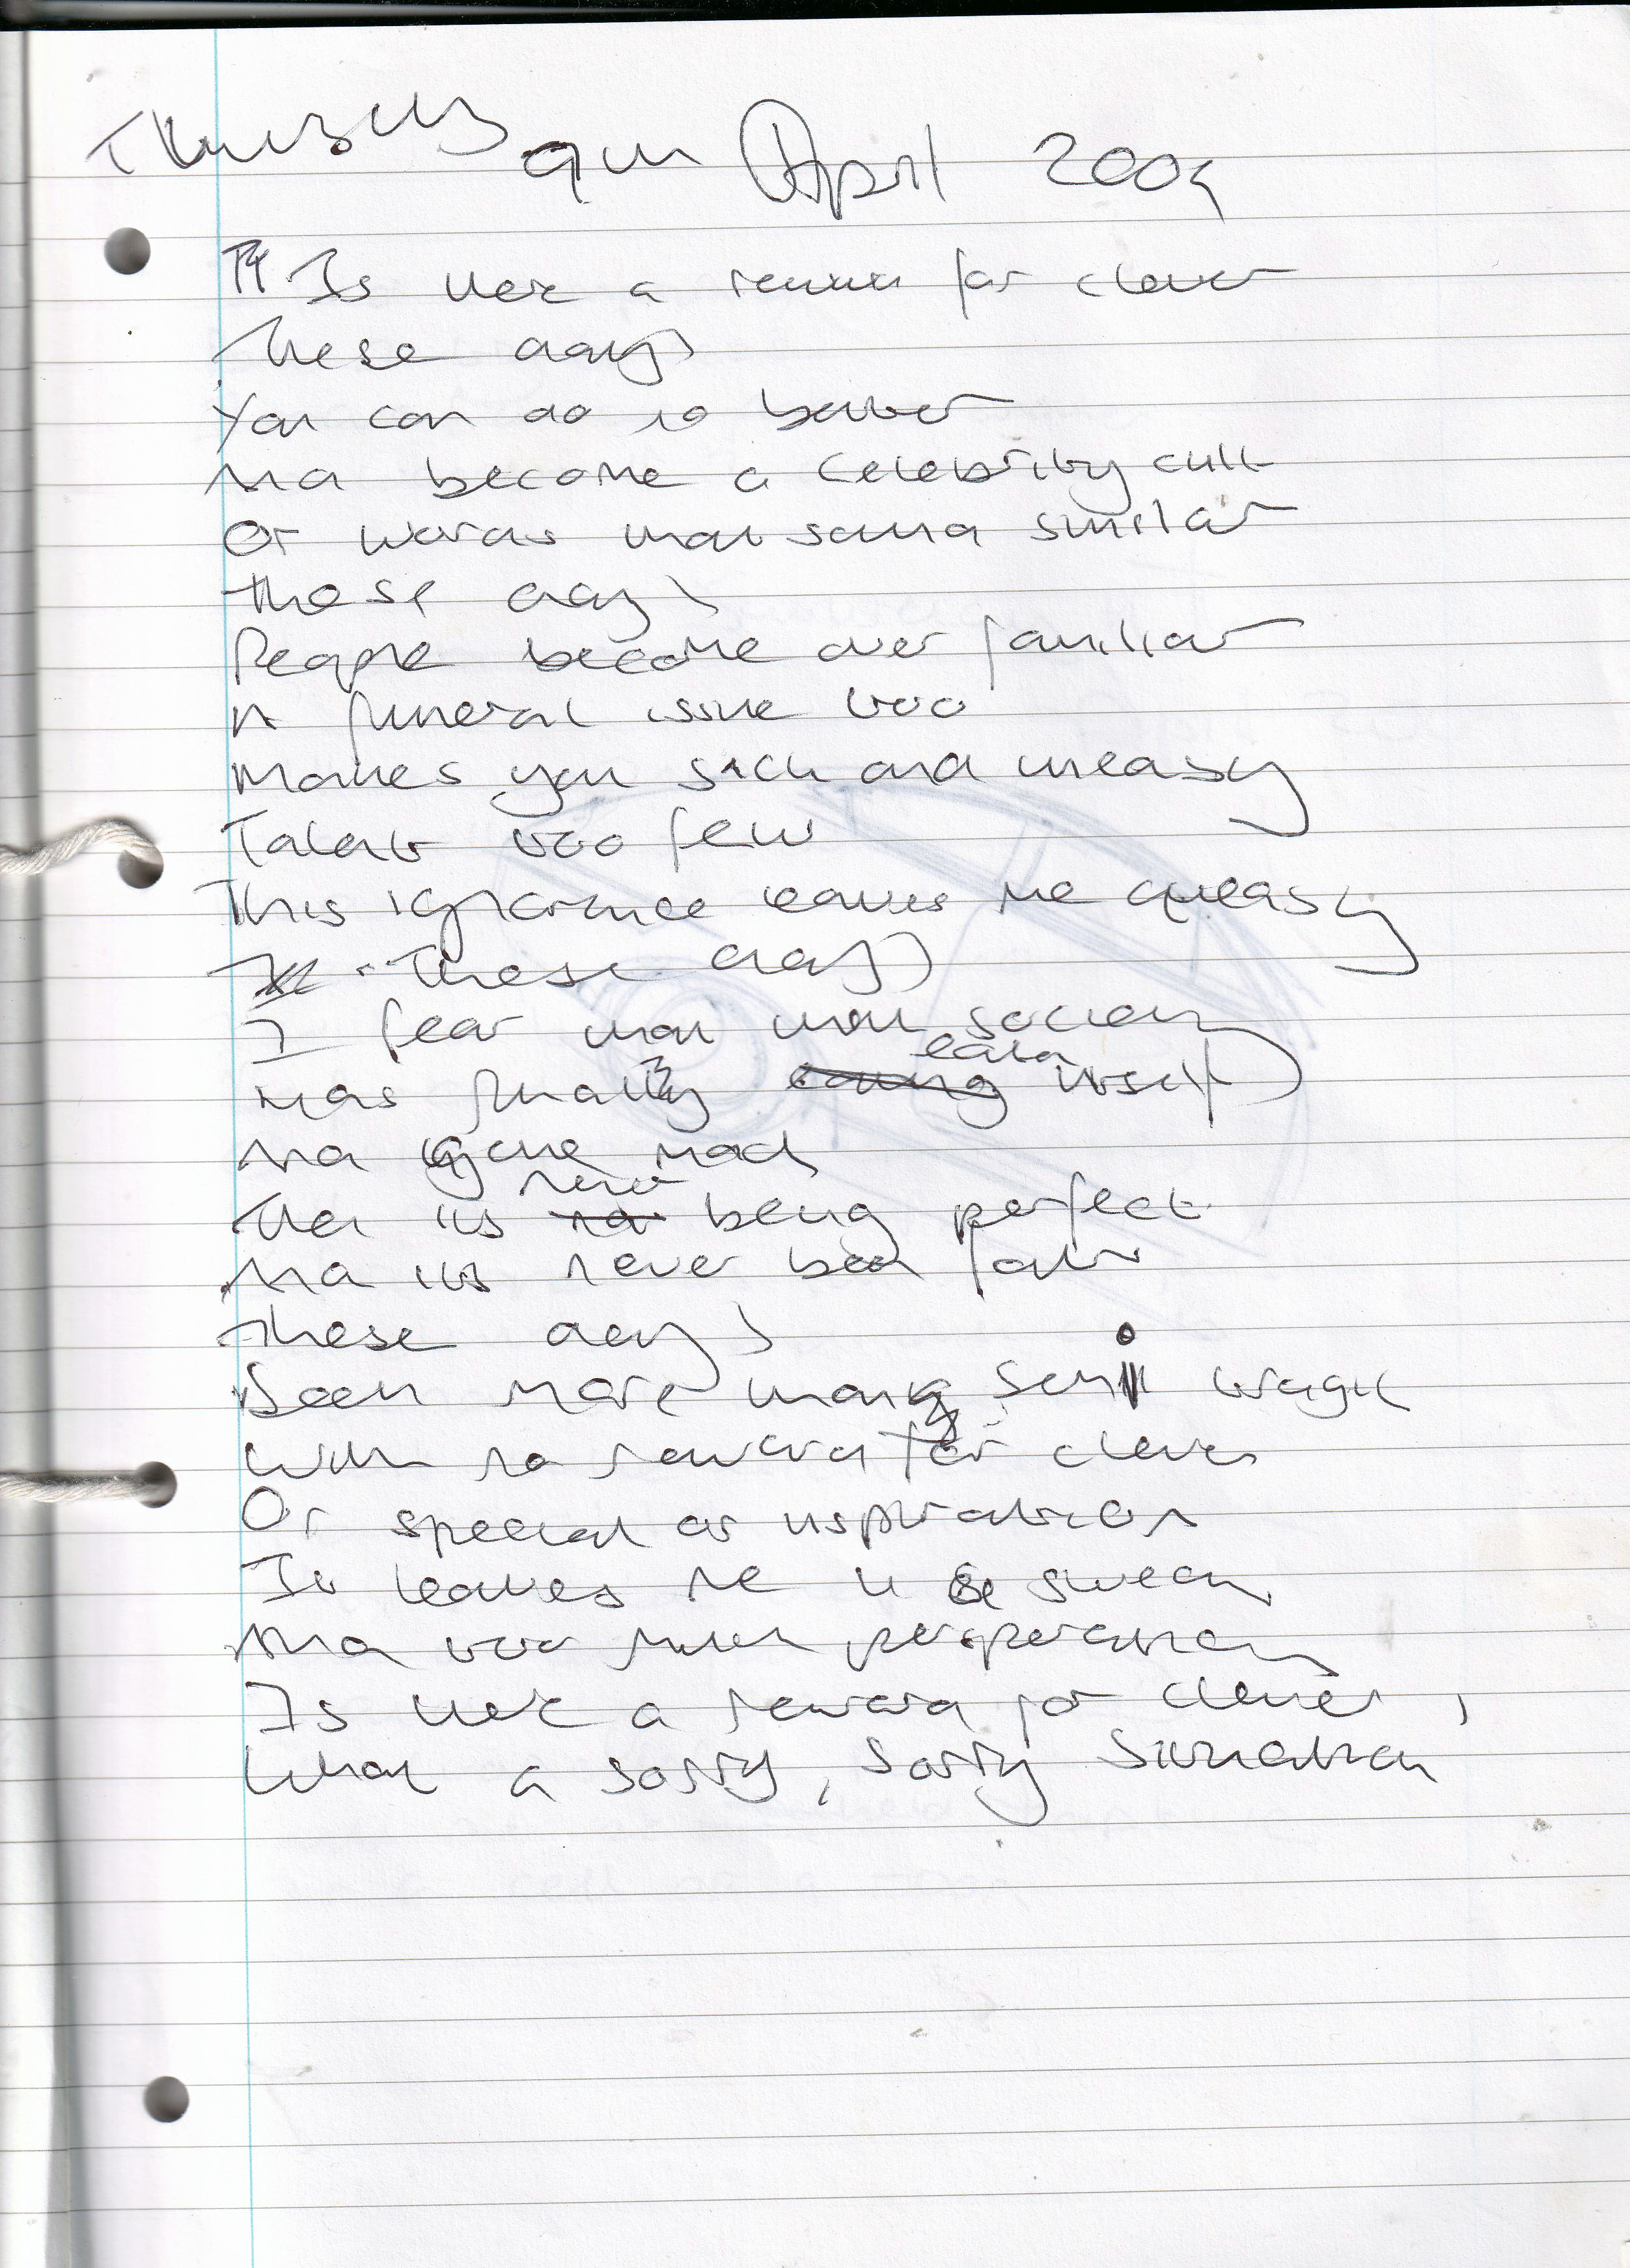 Thursday 9th April 2009
Is there a reward for clever
These days
You can do no better
And become a celebrity cult
Or words that sound similar
These days
People become over familiar
A funeral issue too
Makes you sick and uneasy
Talent too few
This ignorance leaves me queasy
These days
I fear that that society
Has finally eaten itself
And gone mad
Then its never being perfect
And its never been fair
These days
Seen more many semi tragic
With no reward for clever
Or special or inspiration
It leaves me in a sweat
And too much perspiration
Is there a reward for clever,
What a sorry, sorry situation